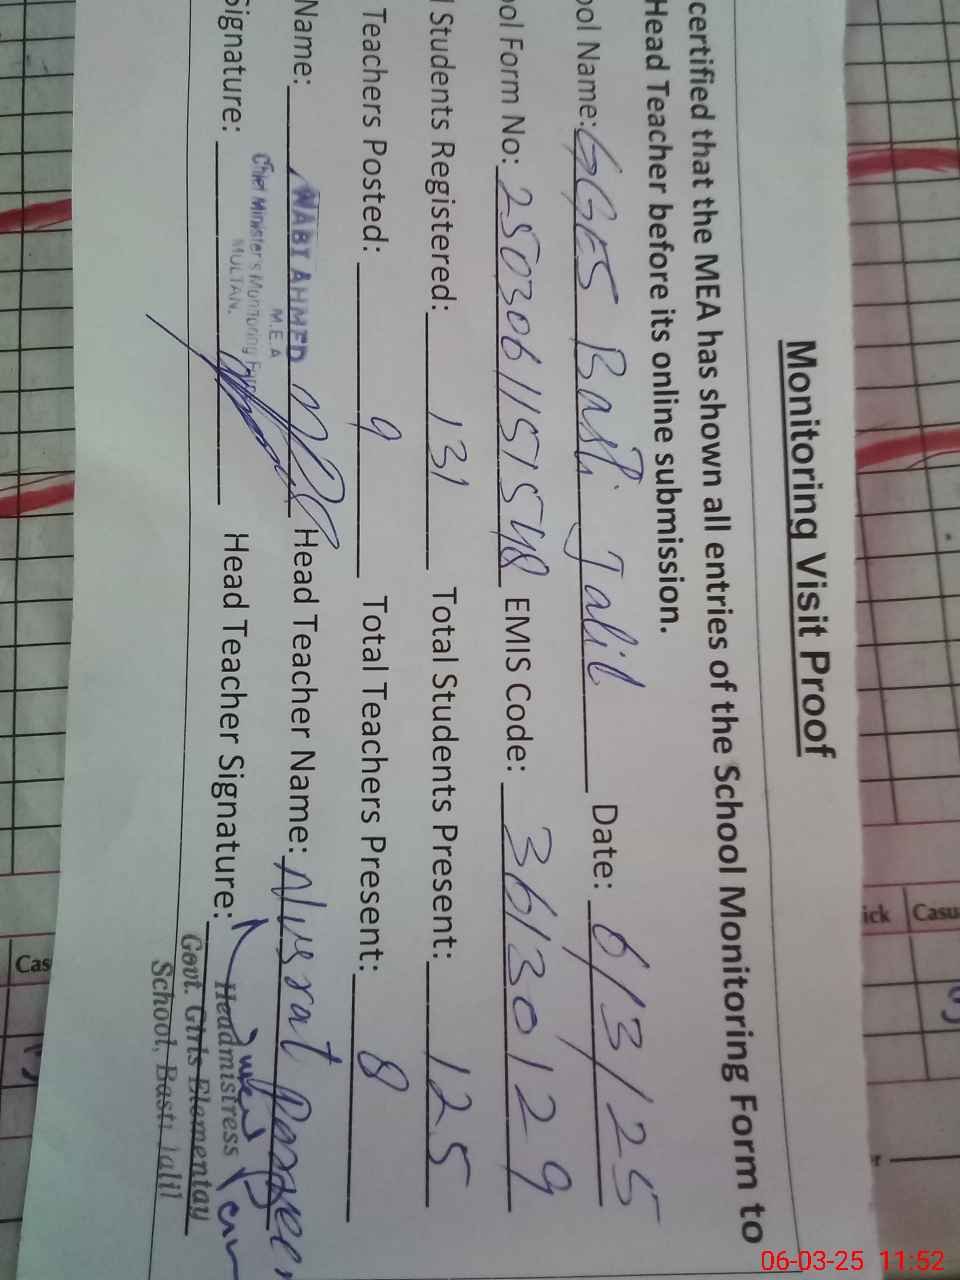 Monitoring Visit Proof
certified that the MEA has shown all entries of the School Monitoring Form to
Head Teacher before its online submission.
ool Name: GGES Basti Jalil Date: 6/3/25
ool Form No: 250306115151548 EMIS Code: 36130129
l Students Registered: 131 Total Students Present: 125
Teachers Posted: 9 Total Teachers Present: 8
Name: NABI AHMED Head Teacher Name: Nusrat Parveen
M.E.A
Chief Minister's Monitoring Force
MULTAN.
Signature: Head Teacher Signature:
Headmistress
Govt. Girls Elementay
School, Basti Jalil
ick Casu
Cas
06-03-25 11:52